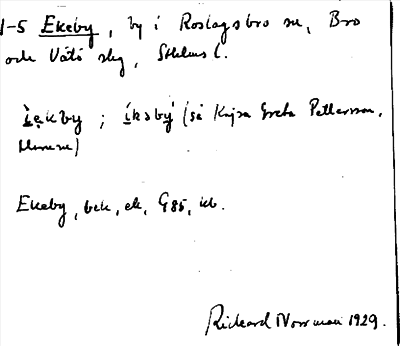 1-5 Ekeby, by i Roslagsbro sn, Bro
och Vätö slg, Sthlms l.
ìẹkby; íksby̆ (så Kajsa Greta Pettersson,
Ekeby, bek, ek, G85, kb.
Rickard Norrman 1929.